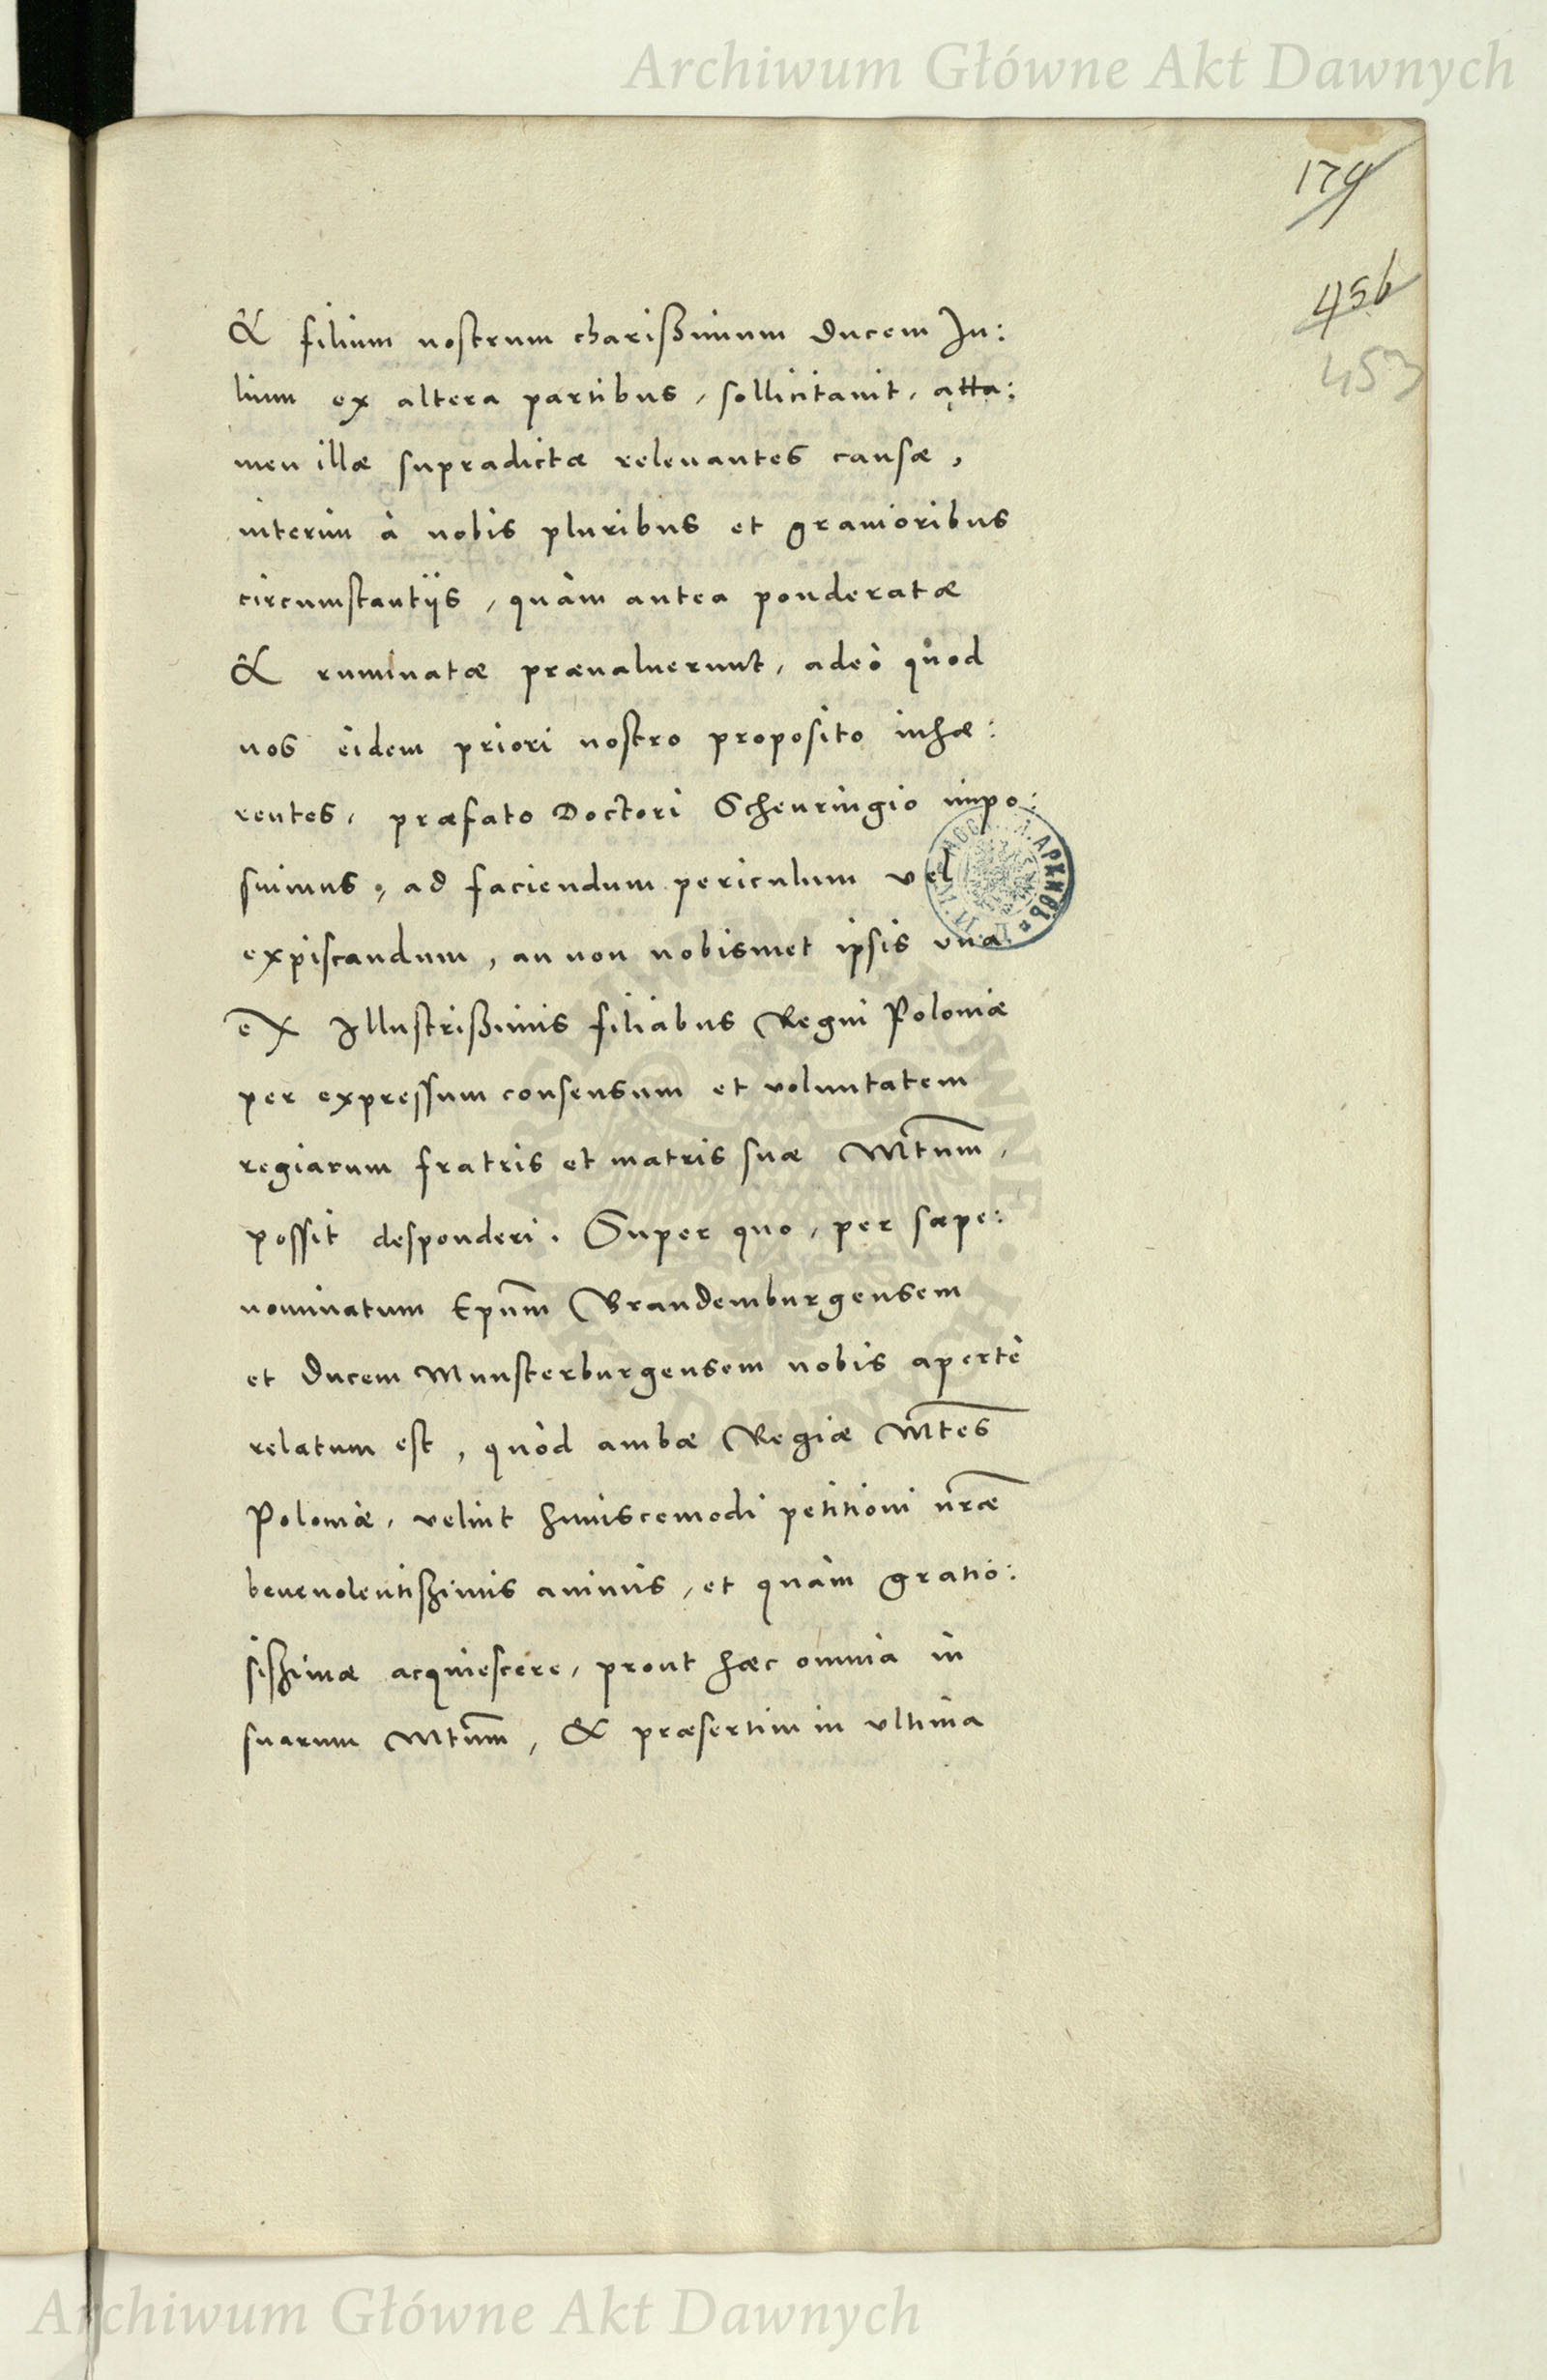 Archiwum Główne Akt Dawnych
174
456
453
& filium nostrum charißimum Ducem Iu:
lium ex altera partibus, sollicitauit, atta:
men illæ supradictæ releuantes causæ,
interim à nobis pluribus et grauioribus
circumstantijs, quàm antea ponderatæ
& ruminatæ præualuerunt, adeò quod
nos eidem priori nostro proposito inhæ:
rentes, præfato Doctori Scheuringio impo:
suimus, ad faciendum periculum vel
expiscandum, an non nobismet ipsis vna
ex Illustrißimis filiabus Regni Poloniæ
per expressum consensum et voluntatem
regiarum fratris et matris suæ Mtum,
possit desponderi. Super quo, per sæpe:
nominatum Epum Brandemburgensem
et Ducem Munsterburgensem nobis apertè
relatum est, quòd ambæ Regiæ Mtes
Poloniæ, velint huiuscemodi petitioni nræ
beneuolentißimis animis, et quàm gratio:
sißimæ acquiescere, prout hæc omnia in
suarum Mtum, & præsertim in vltima
Archiwum Główne Akt Dawnych